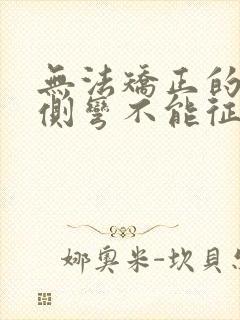 無法矯正的
側彎不能征
娜奧米-坎貝